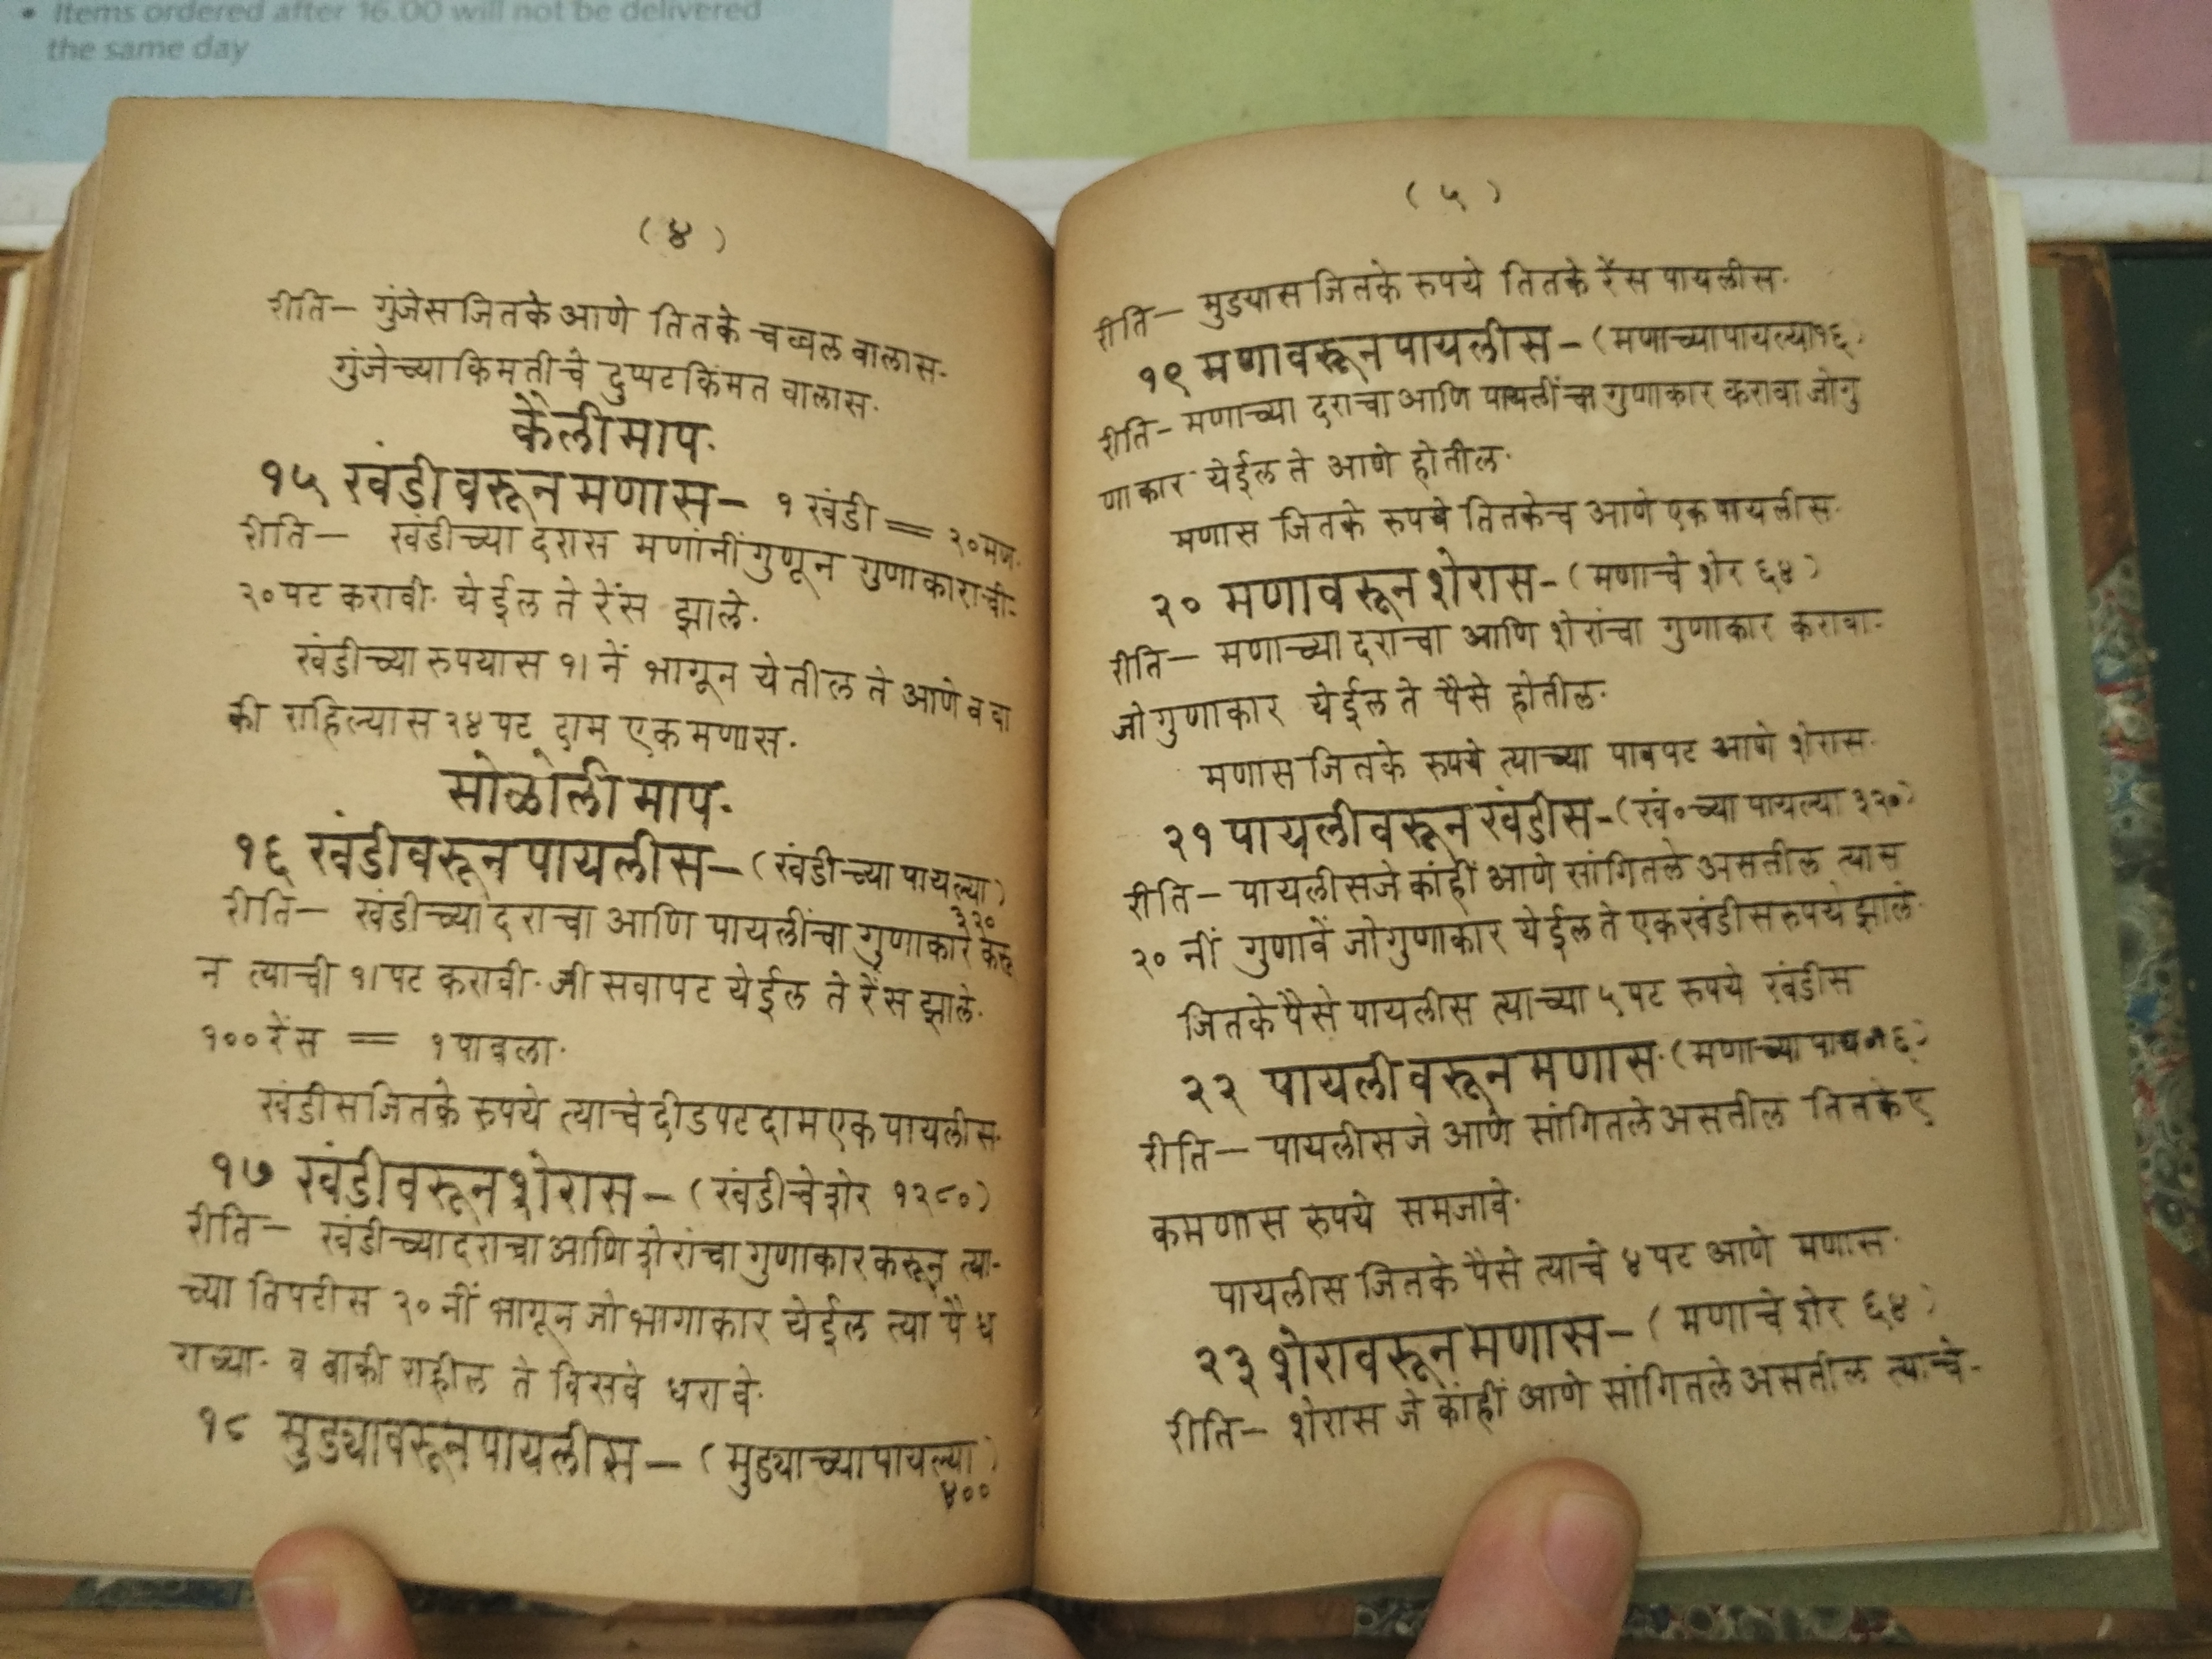 • Items ordered after 16.00 will not be delivered
the same day
( ४ )
रीति— गुंजेस जितके आणे तितके चव्वल वालास.
गुंजेच्या किमतीचे दुप्पट किंमत वालास.
कैली माप.
१५ खंडीवरून मणास— १ खंडी = २० मण.
रीति— खंडीच्या दरास मणांनीं गुणून गुणाकाराची-
२० पट करावी. येईल ते रेंस झाले.
खंडीच्या रुपयास १। नें भागून येतील ते आणे व बा
की राहिल्यास २४ पट दाम एक मणास.
सोळोली माप.
१६ खंडीवरून पायलीस—(खंडीच्या पायल्या)
३२०
रीति— खंडीच्या दराचा आणि पायलींचा गुणाकार करू
न त्याची १। पट करावी. जी सवापट येईल ते रेंस झाले.
१०० रेंस = १ पावला.
खंडीस जितके रुपये त्याचे दीडपट दाम एक पायलीस.
१७ खंडीवरून शेरास—(खंडीचे शेर १२८०)
रीति— खंडीच्या दराचा आणि शेरांचा गुणाकार करून त्या-
च्या तिपटीस २० नीं भागून जो भागाकार येईल त्या पै ध
राव्या. व बाकी राहील ते विसवे धरावे.
१८ मुड्यावरून पायलीस—(मुड्याच्या पायल्या)
४००
( ५ )
रीति— मुडयास जितके रुपये तितके रेंस पायलीस.
१९ मणावरून पायलीस—(मणाच्या पायल्या १६)
रीति— मणाच्या दराचा आणि पायलींचा गुणाकार करावा जो गु
णाकार येईल ते आणे होतील.
मणास जितके रुपये तितकेच आणे एक पायलीस.
२० मणावरून शेरास—(मणाचे शेर ६४)
रीति— मणाच्या दराचा आणि शेरांचा गुणाकार करावा-
जो गुणाकार येईल ते पैसे होतील.
मणास जितके रुपये त्याच्या पावपट आणे शेरास.
२१ पायलीवरून खंडीस—(खं०च्या पायल्या ३२०)
रीति— पायलीस जे कांहीं आणे सांगितले असतील त्यास
२० नीं गुणावें जो गुणाकार येईल ते एक खंडीस रुपये झाले.
जितके पैसे पायलीस त्याच्या ५ पट रुपये खंडीस
२२ पायलीवरून मणास.(मणाच्या पाय १६)
रीति— पायलीस जे आणे सांगितले असतील तितके ए
क मणास रुपये समजावे.
पायलीस जितके पैसे त्याचे ४ पट आणे मणास.
२३ शेरावरून मणास—(मणाचे शेर ६४)
रीति— शेरास जे कांहीं आणे सांगितले असतील त्याचे-